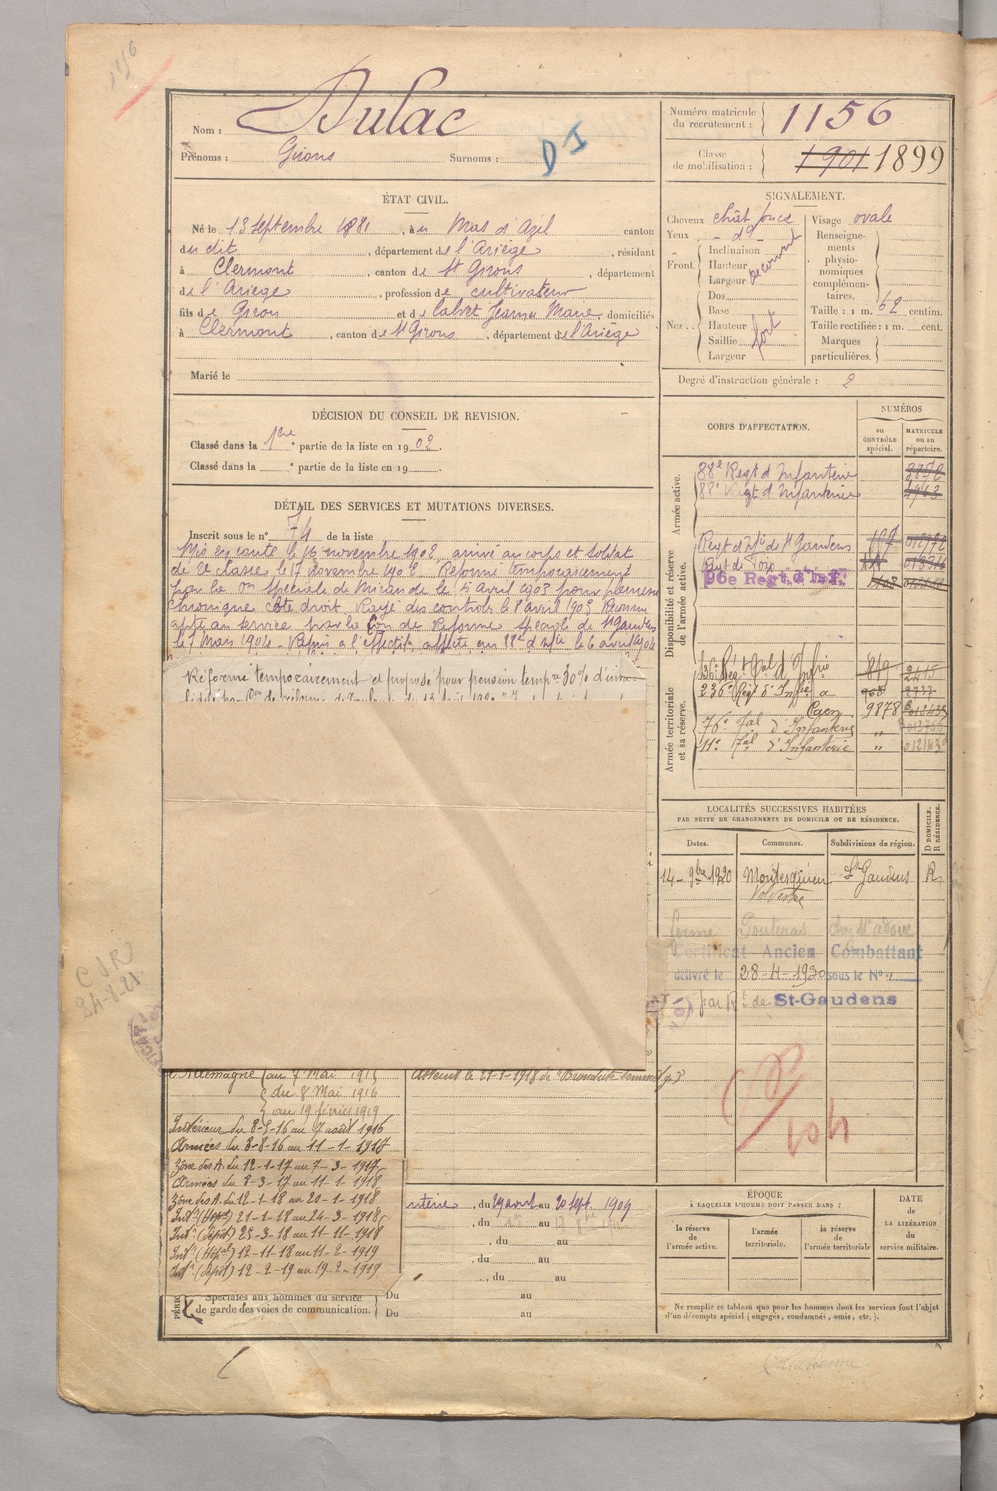 1156
Nom : Dulac
Prénoms : Girons Surnoms :
D I
Numéro matricule du recrutement : 1156
Classe de mobilisation : 1901 1899
ÉTAT CIVIL.
Né le 13 Septembre 1881, à u Mas d'Azil canton
du dit, département de l'Ariège, résidant
à Clermont, canton de St Girons, département
de l'Ariège, profession de cultivateur
fils de Giron et de Calvet Jeanne Marie, domiciliés
à Clermont, canton de St Girons, département de l'Ariège
Marié le
SIGNALEMENT.
Cheveux chât foncé Visage ovale
Yeux - do - Renseignements physionomiques complémentaires.
Front. Inclinaison
Hauteur
Largeur
Nez. Dos
Base
Hauteur fort
Saillie
Largeur
Taille : 1 m. 62 centim.
Taille rectifiée : 1 m. cent.
Marques particulières.
Degré d'instruction générale : 2
DÉCISION DU CONSEIL DE REVISION.
Classé dans la 1ère partie de la liste en 1902
Classé dans la ° partie de la liste en 19
DÉTAIL DES SERVICES ET MUTATIONS DIVERSES.
Inscrit sous le n° 74 de la liste
Mis en route le 16 novembre 1902 arrivé au corps et soldat
de 2e classe le 17 novembre 1902. Réformé temporairement
par la Con spéciale de Mirande le 5 avril 1903 pour
chronique côté droit. Rayé des contrôles le 8 avril 1903. Reconnu
apte au service par la Con de Réforme spéciale de St Gaudens
le 7 Mars 1904. Repris à l'effectif, affecté au 88e d'Infie le 6 avril 1904
Réformé temporairement et proposé pour pension tempre 30% d'inva-
CORPS D'AFFECTATION.
NUMÉROS
au CONTRÔLE spécial.
MATRICULE ou au répertoire.
Armée active.
88e Regt d'Infanterie
88e Regt d'Infanterie
Disponibilité et réserve de l'armée active.
Regt d'Infie de St Gaudens
96e Regt. d'Inf.
Armée territoriale et sa réserve.
136e Régt Tal d'Infie 819
236e Régt d'Infie à
Caen 9878
76e Tal d'Infanterie "
11e Tal d'Infanterie "
LOCALITÉS SUCCESSIVES HABITÉES
PAR SUITE DE CHANGEMENTS DE DOMICILE OU DE RÉSIDENCE.
Dates. Communes. Subdivisions de région. D DOMICILE. R RÉSIDENCE.
14 - 9bre 1920 Montesquieu Volvestre St Gaudens R
ferme
Certificat Ancien Combattant
délivré le 28-4-1930 sous le N°
par R. de St-Gaudens
CSR
24-8-21
d'Allemagne au 7 Mai 1916
du 8 Mai 1916
au 19 février 1919
Intérieur du 8-5-16 au 7 août 1916
Armées du 8-8-16 au 11-1-1917
Zône des A. du 12-1-17 au 7-3-1917
Armées du 8-3-17 au 11-1-1918
Zône des A. du 12-1-18 au 20-1-1918
Intr (Hôpal) 21-1-18 au 24-3-1918
Intr (dépôt) 25-3-18 au 11-11-1918
Intr (Hôpal) 12-11-18 au 11-2-1919
Intr (dépôt) 12-2-19 au 19-2-1919
Atteint le 21-1-1918 de "Bronchite
du 29 août au 20 Sept. 1909
, du au
, du au
, du au
, du au
Spéciales aux hommes du service de garde des voies de communication.
Du au
Du au
ÉPOQUE
À LAQUELLE L'HOMME DOIT PASSER DANS :
la réserve de l'armée active. l'armée territoriale. la réserve de l'armée territoriale
DATE de LA LIBÉRATION du service militaire.
Ne remplir ce tableau que pour les hommes dont les services font l'objet
d'un décompte spécial (engagés, condamnés, omis, etc.).